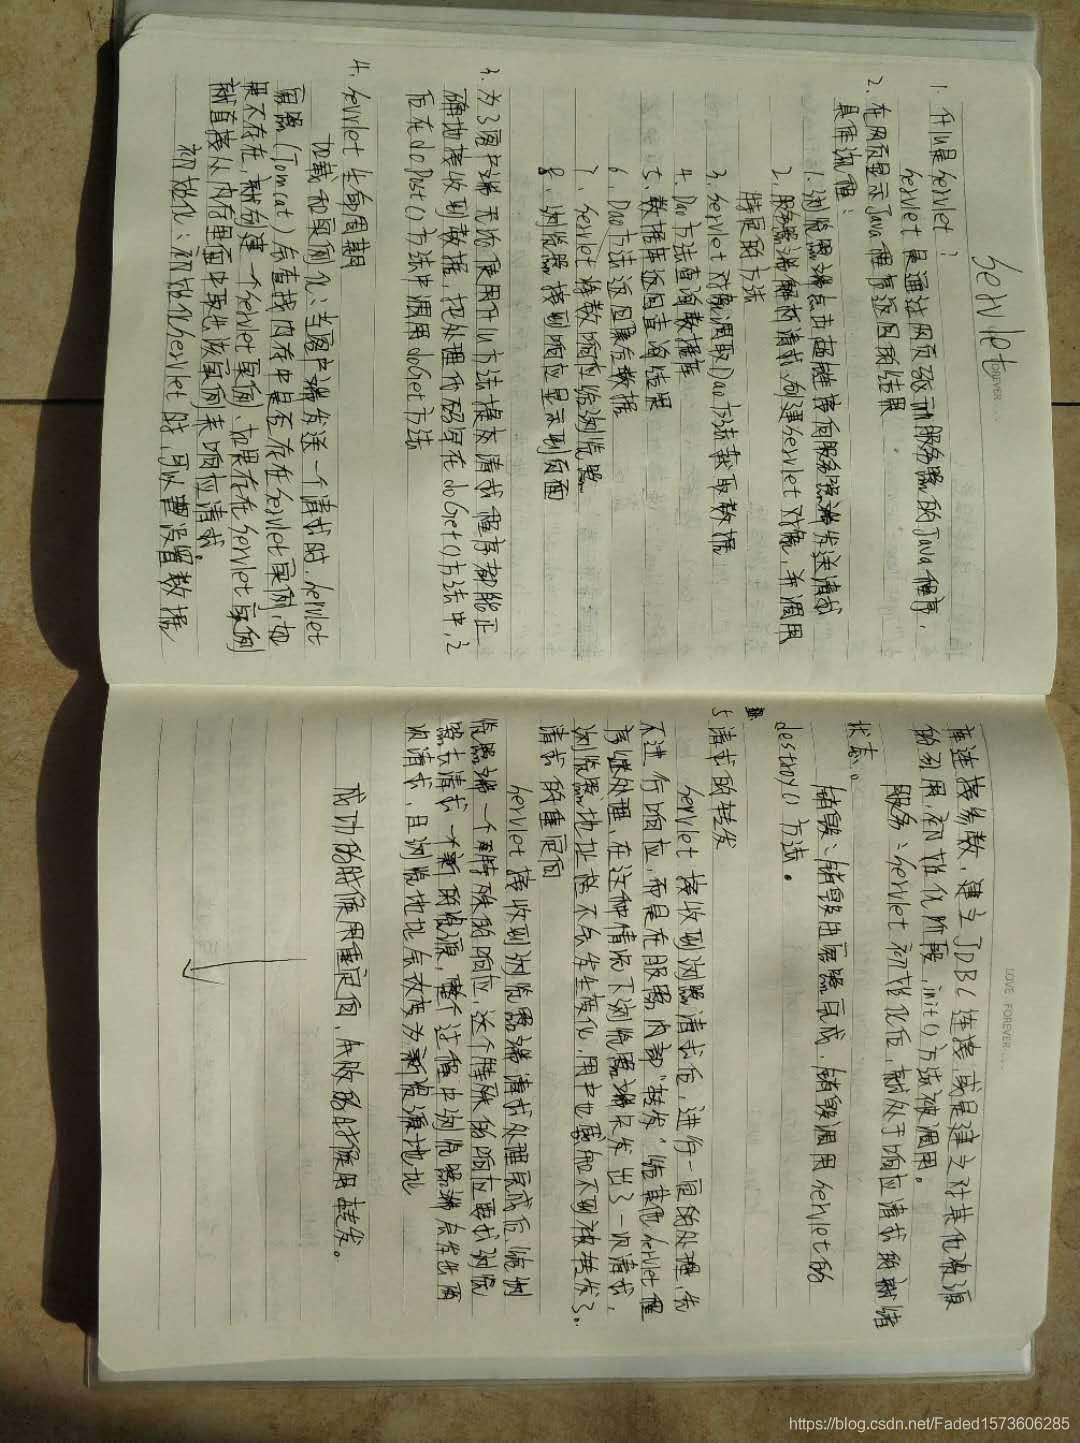 Servlet
FOREVER...
1. 什么是 Servlet ?
Servlet 是通过网页驱动服务器的Java程序,
2. 在网页显示Java程序返回的结果.
具体流程:
1. 浏览器端点击超链接向服务器端发送请求
2. 服务器端解析请求、创建Servlet对象,并调用
特定的方法
3. Servlet对象调取Dao方法获取数据
4. Dao方法查询数据库
5. 数据库返回查询结果
6. Dao方法返回集合数据
7. Servlet将数响应给浏览器
8. 浏览器接到响应显示到页面
3. 为了客户端无论使用什么方法提交请求程序都能正
确地接收到数据,把处理代码写在doGet()方法中,之
后在doPost()方法中调用doGet方法
4. Servlet生命周期
加载和实例化:当客户端发送一个请求时,Servlet
容器(Tomcat)会查找内存中是否存在Servlet实例,如
果不存在,就创建一个Servlet实例、如果存在Servlet实例
就直接从内存里面中取出该实例来响应请求.
初始化:初始化Servlet时,可以设置数据
LOVE FOREVER....
库连接参数,建立JDBC连接,或是建立对其他资源
的引用,初始化阶段,init()方法被调用。
服务:Servlet初始化后,就处于响应请求的就绪
状态。
销毁:销毁由容器完成,销毁调用Servlet的
destroy()方法。
5 请求的转发
Servlet接收到浏览器请求后,进行一定的处理,先
不进行响应,而是在服务器内部“转发”给其他Servlet程
序继续处理,在这种情况下浏览器端只发出了一次请求,
浏览器地址栏不会发生变化,用户也感知不到被转发了。
请求的重定向
Servlet接收到浏览器端请求处理完成后,给浏
览器端一个特殊的响应,这个特殊的响应要求浏览
器去请求一个新的资源,整个过程中浏览器端会发出两
次请求,且浏览地址会改变为新资源地址
成功的时候用重定向,失败的时候用转发。
https://blog.csdn.net/Faded1573606285